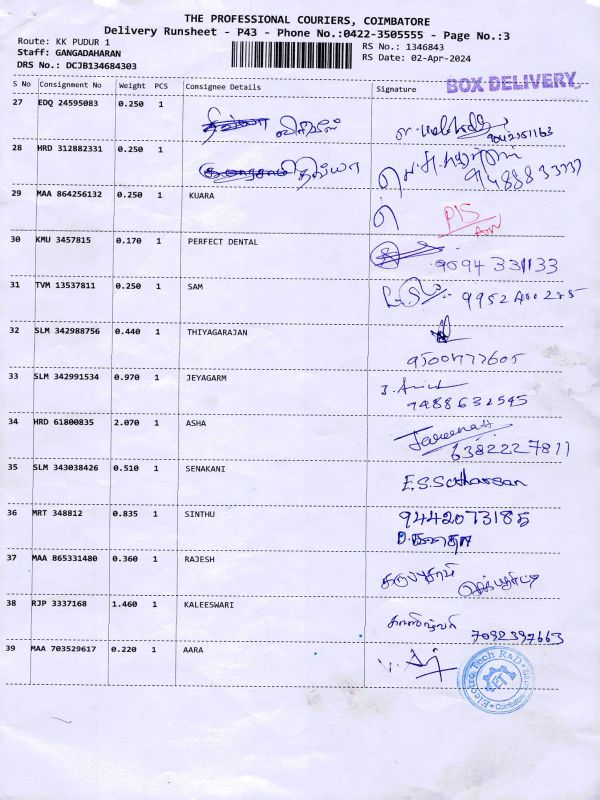 THE PROFESSIONAL COURIERS, COIMBATORE
Delivery Runsheet - P43 - Phone No.:0422-3505555 - Page No.:3
Route: KK PUDUR 1 RS No.: 1346843
Staff: GANGADAHARAN RS Date: 02-Apr-2024
DRS No.: DCJB134684303
BOX DELIVERY
S No Consignment No Weight PCS Consignee Details Signature
27 EDQ 24595083 0.250 1
28 HRD 312882331 0.250 1 திவ்யா
29 MAA 864256132 0.250 1 KUARA
30 KMU 3457815 0.170 1 PERFECT DENTAL
9094 331133
31 TVM 13537811 0.250 1 SAM
32 SLM 342988756 0.440 1 THIYAGARAJAN
9500477605
33 SLM 342991534 0.970 1 JEYAGARM
7488632545
34 HRD 61800835 2.070 1 ASHA
6382227811
35 SLM 343038426 0.510 1 SENAKANI
36 MRT 348812 0.835 1 SINTHU 9442073185
37 MAA 865331480 0.360 1 RAJESH
38 RJP 3337168 1.460 1 KALEESWARI
7092397663
39 MAA 703529617 0.220 1 AARA
Electro Tech R&D
Coimbatore